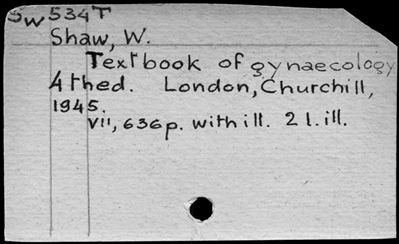 Sw 534T
Shaw, W.
Textbook of gynaecology
4thed. London, Churchill,
1945.
VII, 636p. with ill. 21. ill.